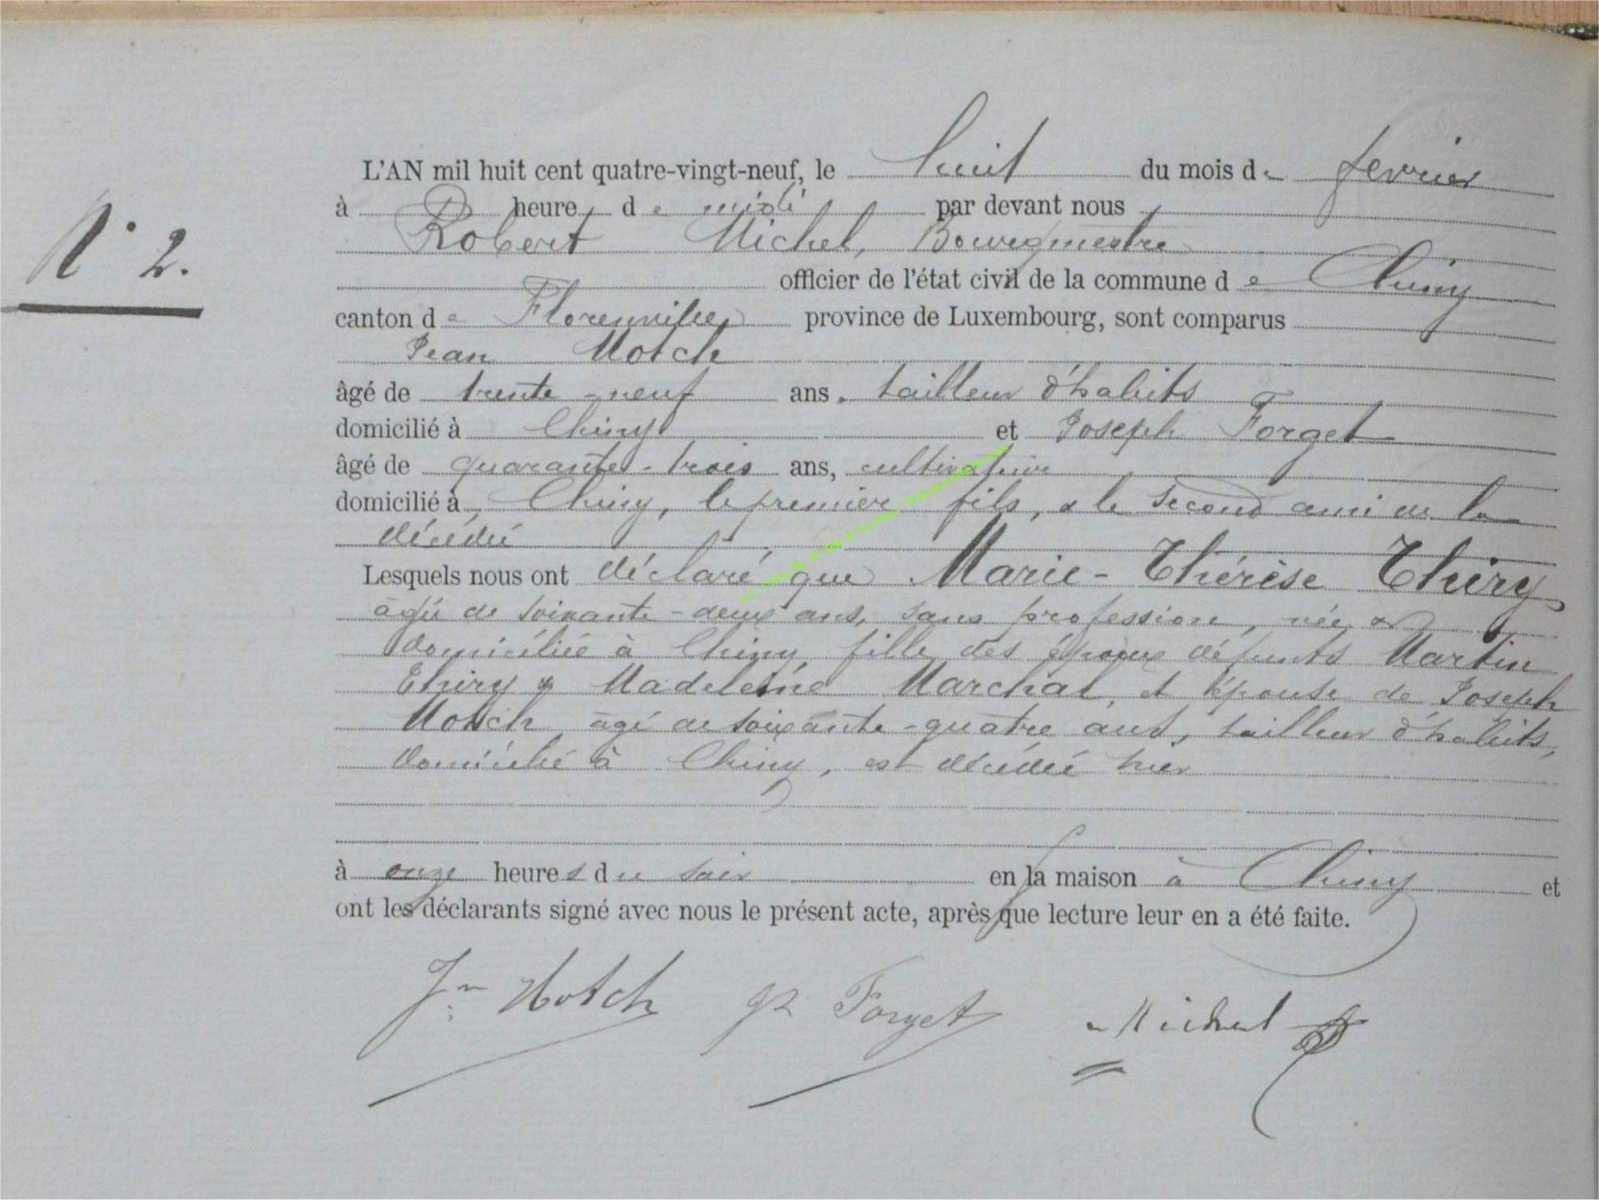 N° 2.
L'AN mil huit cent quatre-vingt-neuf, le huit du mois de fevrier
à heure de midi par devant nous
Robert Michel, Bourgmestre
officier de l'état civil de la commune de Chiny
canton de Florenville province de Luxembourg, sont comparus
Jean Motch
âgé de trente-neuf ans, tailleur d'habits
domicilié à Chiny et Joseph Forget
âgé de quarante-trois ans, cultivateur
domicilié à Chiny, le premier fils, & le second ami de la
décédée
Lesquels nous ont déclaré que Marie-Thérèse Thiry
âgée de soixante-deux ans, sans profession, née &
domiciliée à Chiny, fille des époux défunts Martin
Thiry & Madeleine Marchal, et épouse de Joseph
Motch âgé de soixante-quatre ans, tailleur d'habits,
domicilié à Chiny, est décédée hier
à onze heures du soir en la maison à Chiny et
ont les déclarants signé avec nous le présent acte, après que lecture leur en a été faite.
Jn Motch Forget Michel